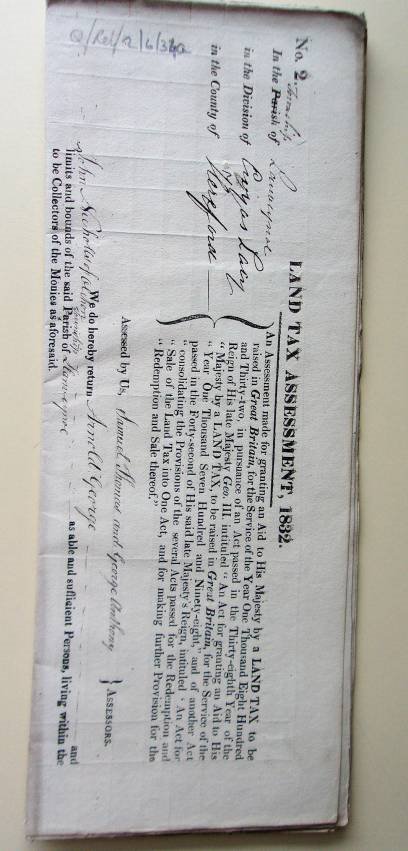 Q/Rel/12/6/34a
No. 2.
LAND TAX ASSESSMENT, 1832.
Township
In the Parish of Llanveynoe
in the Division of Ewyas Lacy
in the County of Hereford
An Assessment made for granting an Aid to His Majesty by a LAND TAX to be
raised in Great Britain, for the Service of the Year One Thousand Eight Hundred
and Thirty-two, in pursuance of an Act passed in the Thirty-eighth Year of the
Reign of His late Majesty Geo. III. intituled "An Act for granting an Aid to His
" Majesty by a LAND TAX, to be raised in Great Britain, for the Service of the
" Year One Thousand Seven Hundred and Ninety-eight," and of another Act
passed in the Forty-second of His said late Majesty's Reign, intituled "An Act for
" consolidating the Provisions of the several Acts passed for the Redemption and
" Sale of the Land Tax into One Act, and for making further Provision for the
" Redemption and Sale thereof."
Assessed by Us, Samuel Thomas and George Anthony } ASSESSORS.
We do hereby return Arnold George and
John Nicholas as able and sufficient Persons, living within the
Township
limits and bounds of the said Parish of Llanveynoe
to be Collectors of the Monies as aforesaid.